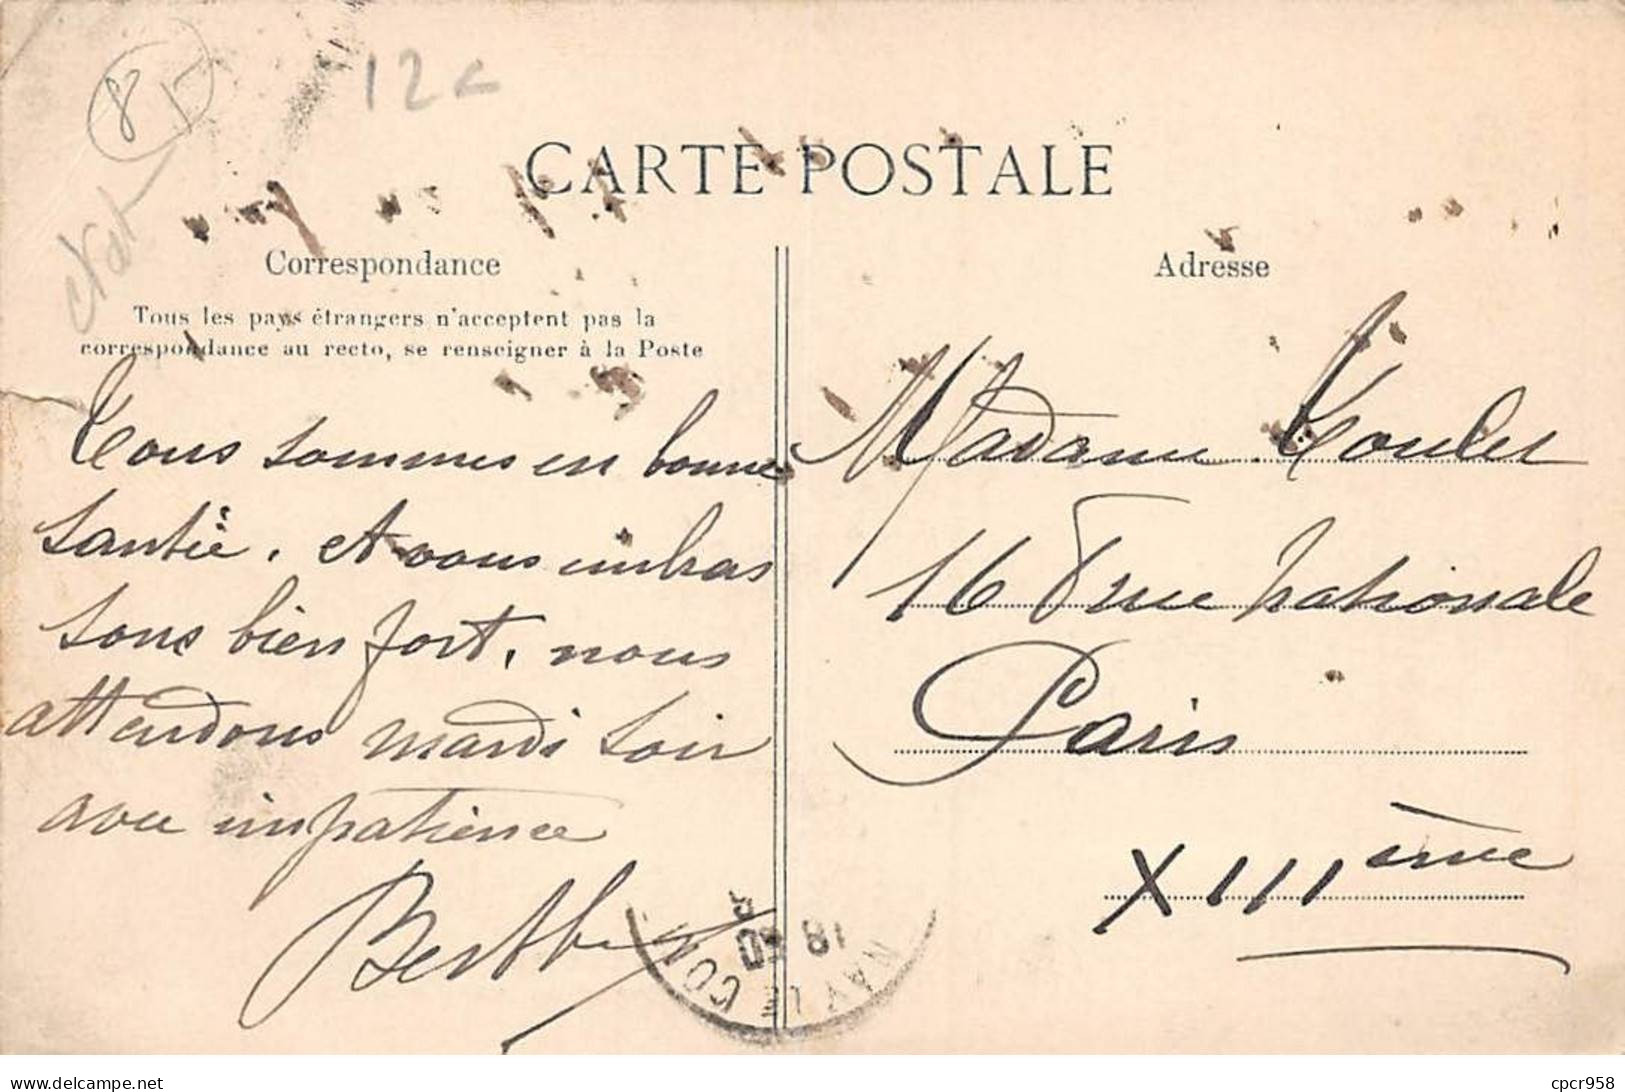 85
12€
état
CARTE POSTALE
Correspondance
Tous les pays étrangers n'acceptent pas la
correspondance au recto, se renseigner à la Poste
Tous sommes en bonne
santée. et vous embras
sons bien fort, nous
attendons mardi soir
avec impatience
Berthe
Adresse
Madame Toulet
16 rue nationale
Paris
XIIIème
18
Delcampe.net
cpcr958